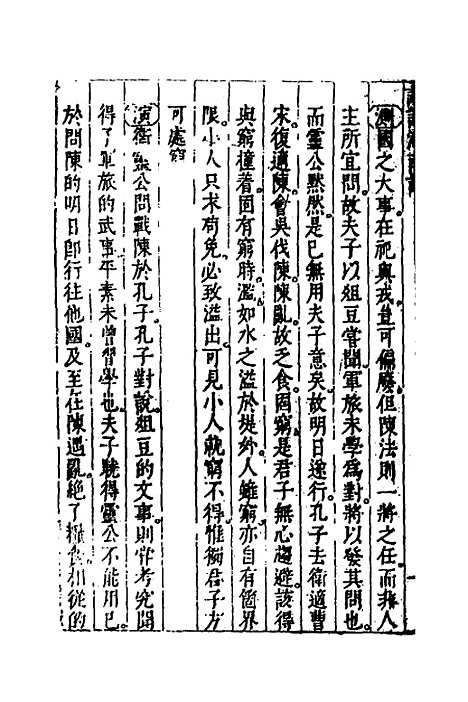 測國之大事在祀與戎豈可偏廢但陳法則一將之任而非人
主所宜問故夫子以俎豆嘗聞軍旅未學為對將以發其問也
而靈公默然是已無用夫子意矣故明日遂行孔子去衛適曹
宋復適陳會吳伐陳陳亂故乏食固窮是君子無心趨避該得
與窮撞着固有窮時濫如水之溢於堤外人雖窮亦自有個界
限小人只求苟免必致溢出可見小人就窮不得惟獨君子方
可處窮
演衛靈公問戰陳於孔子孔子對說俎豆的文事則嘗考究聞
得了軍旅的武事平素未曾習學也夫子曉得靈公不能用己
於問陳的明日即行往他國及至在陳遇亂絶了糧食相從的